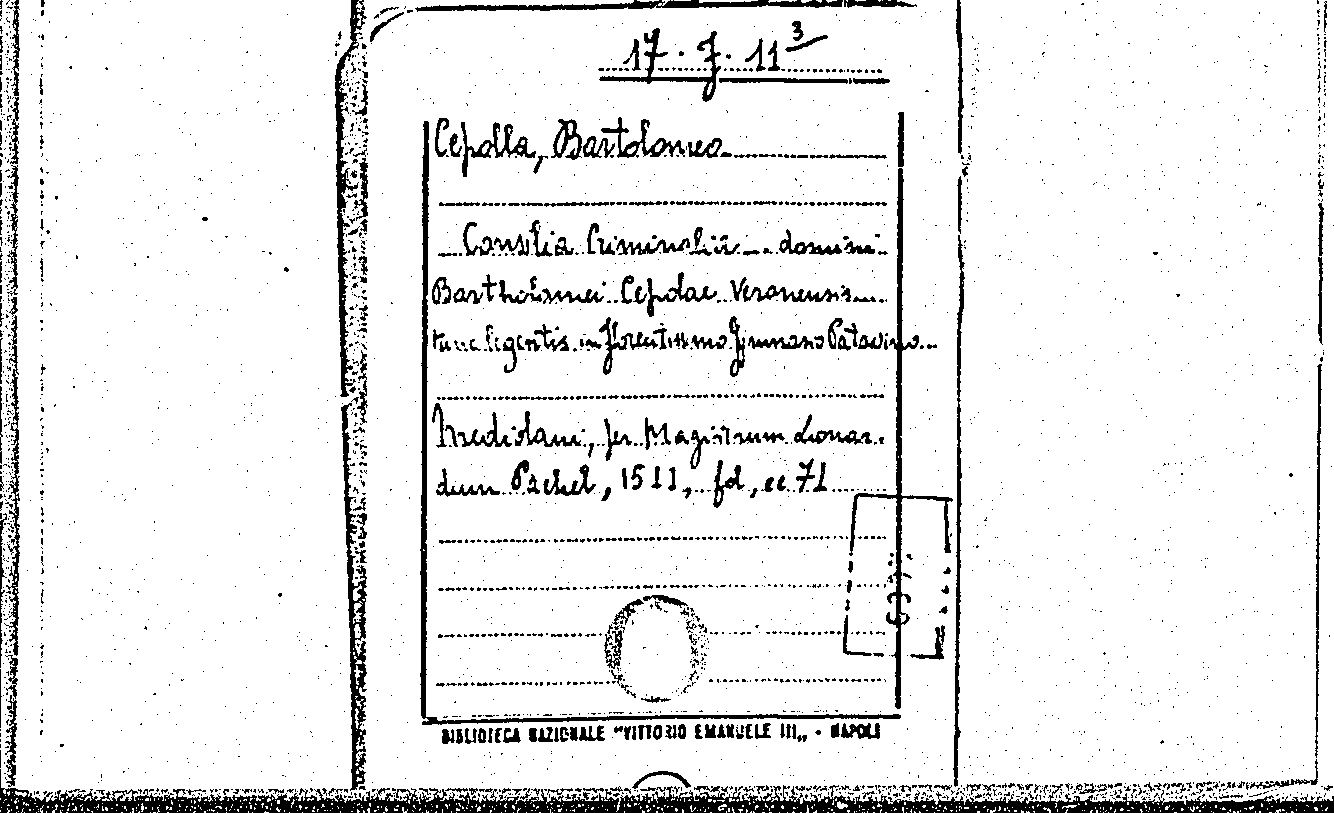 17. J. 11³
Cepolla, Bartolomeo
Consilia Criminalia domini
Bartholomei Cepolae Veronensis
tunc legentis in florentissimo Gymnasio Patavino
Mediolani, per Magistrum Leonar
dum Pachel, 1511, fol, cc 71
BIBLIOTECA NAZIONALE "VITTORIO EMANUELE III„ - NAPOLI